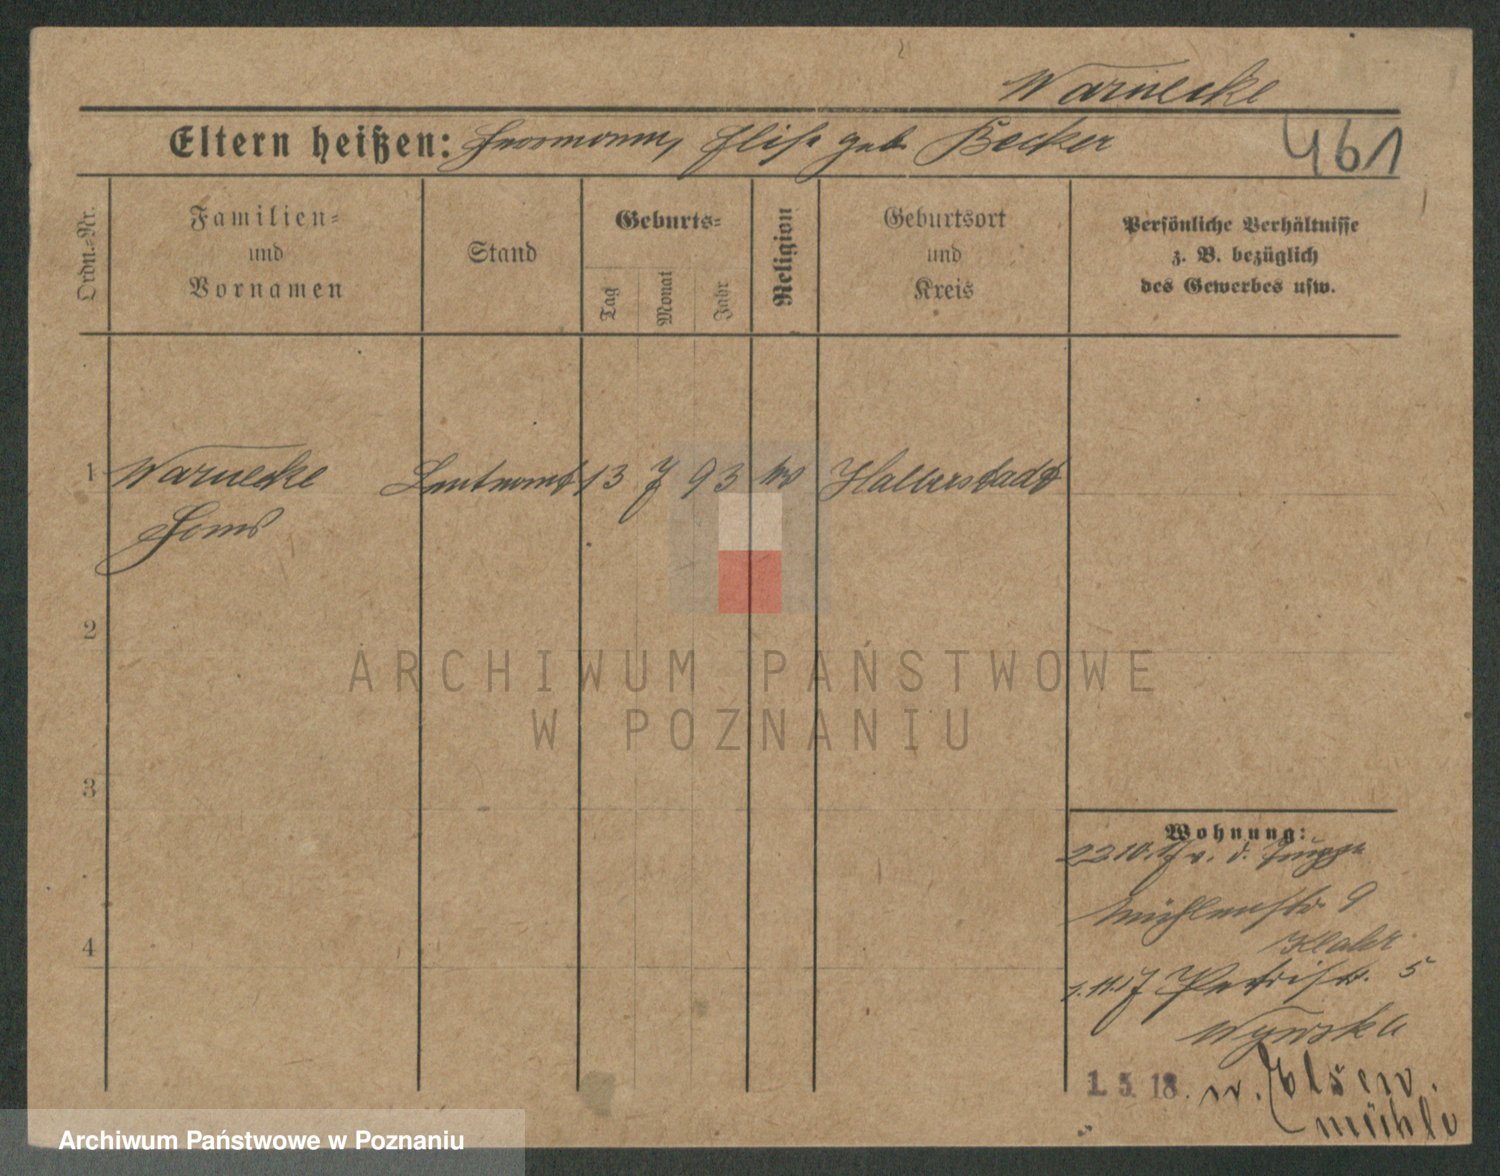 Warnecke
Eltern heißen: Hermann, Elise geb. Becker
461
Ordn.-Nr.
Familien-
und
Vornamen
Stand
Geburts-
Tag
Monat
Jahr
Religion
Geburtsort
und
Kreis
Persönliche Verhältnisse
z. B. bezüglich
des Gewerbes usw.
1 Warnecke Leutnant 13 7 93 Halberstadt
Hans
2
ARCHIWUM PAŃSTWOWE
W POZNANIU
3
Wohnung:
22.10.17 v. d. Truppe
Mühlenstr. 9
4
1.11.17 Petristr. 5
1.5.18. n. Elsen-
mühle
Archiwum Państwowe w Poznaniu